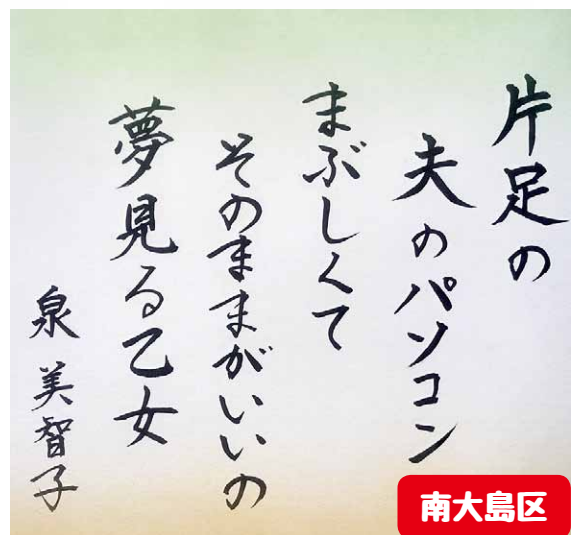 片足の
夫のパソコン
まぶしくて
そのままがいいの
夢見る乙女
泉美智子
南大島区